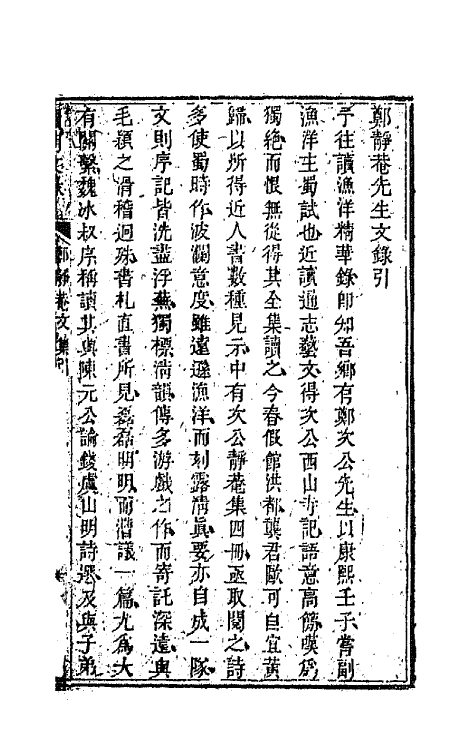 鄭靜菴先生文錄引
予往讀漁洋精華錄卽知吾鄉有鄭次公先生以康熙壬子嘗副
漁洋主蜀試也近讀通志藝文得次公西山寺記語意高簡嘆爲
獨絶而恨無從得其全集讀之今春假館洪都龔君歐可自宜黃
歸以所得近人書數種見示中有次公靜菴集四冊亟取閱之詩
多使蜀時作波瀾意度雖遠遜漁洋而刻露淸眞要亦自成一隊
文則序記皆洗盡浮蕪獨標淸韻傳多游戲之作而寄託深遠與
毛穎之滑稽迥殊書札直書所見磊磊明明而濳議一篇尤爲大
有關繫魏冰叔序稱讀其與陳元公論錢虞山明詩選及與子弟